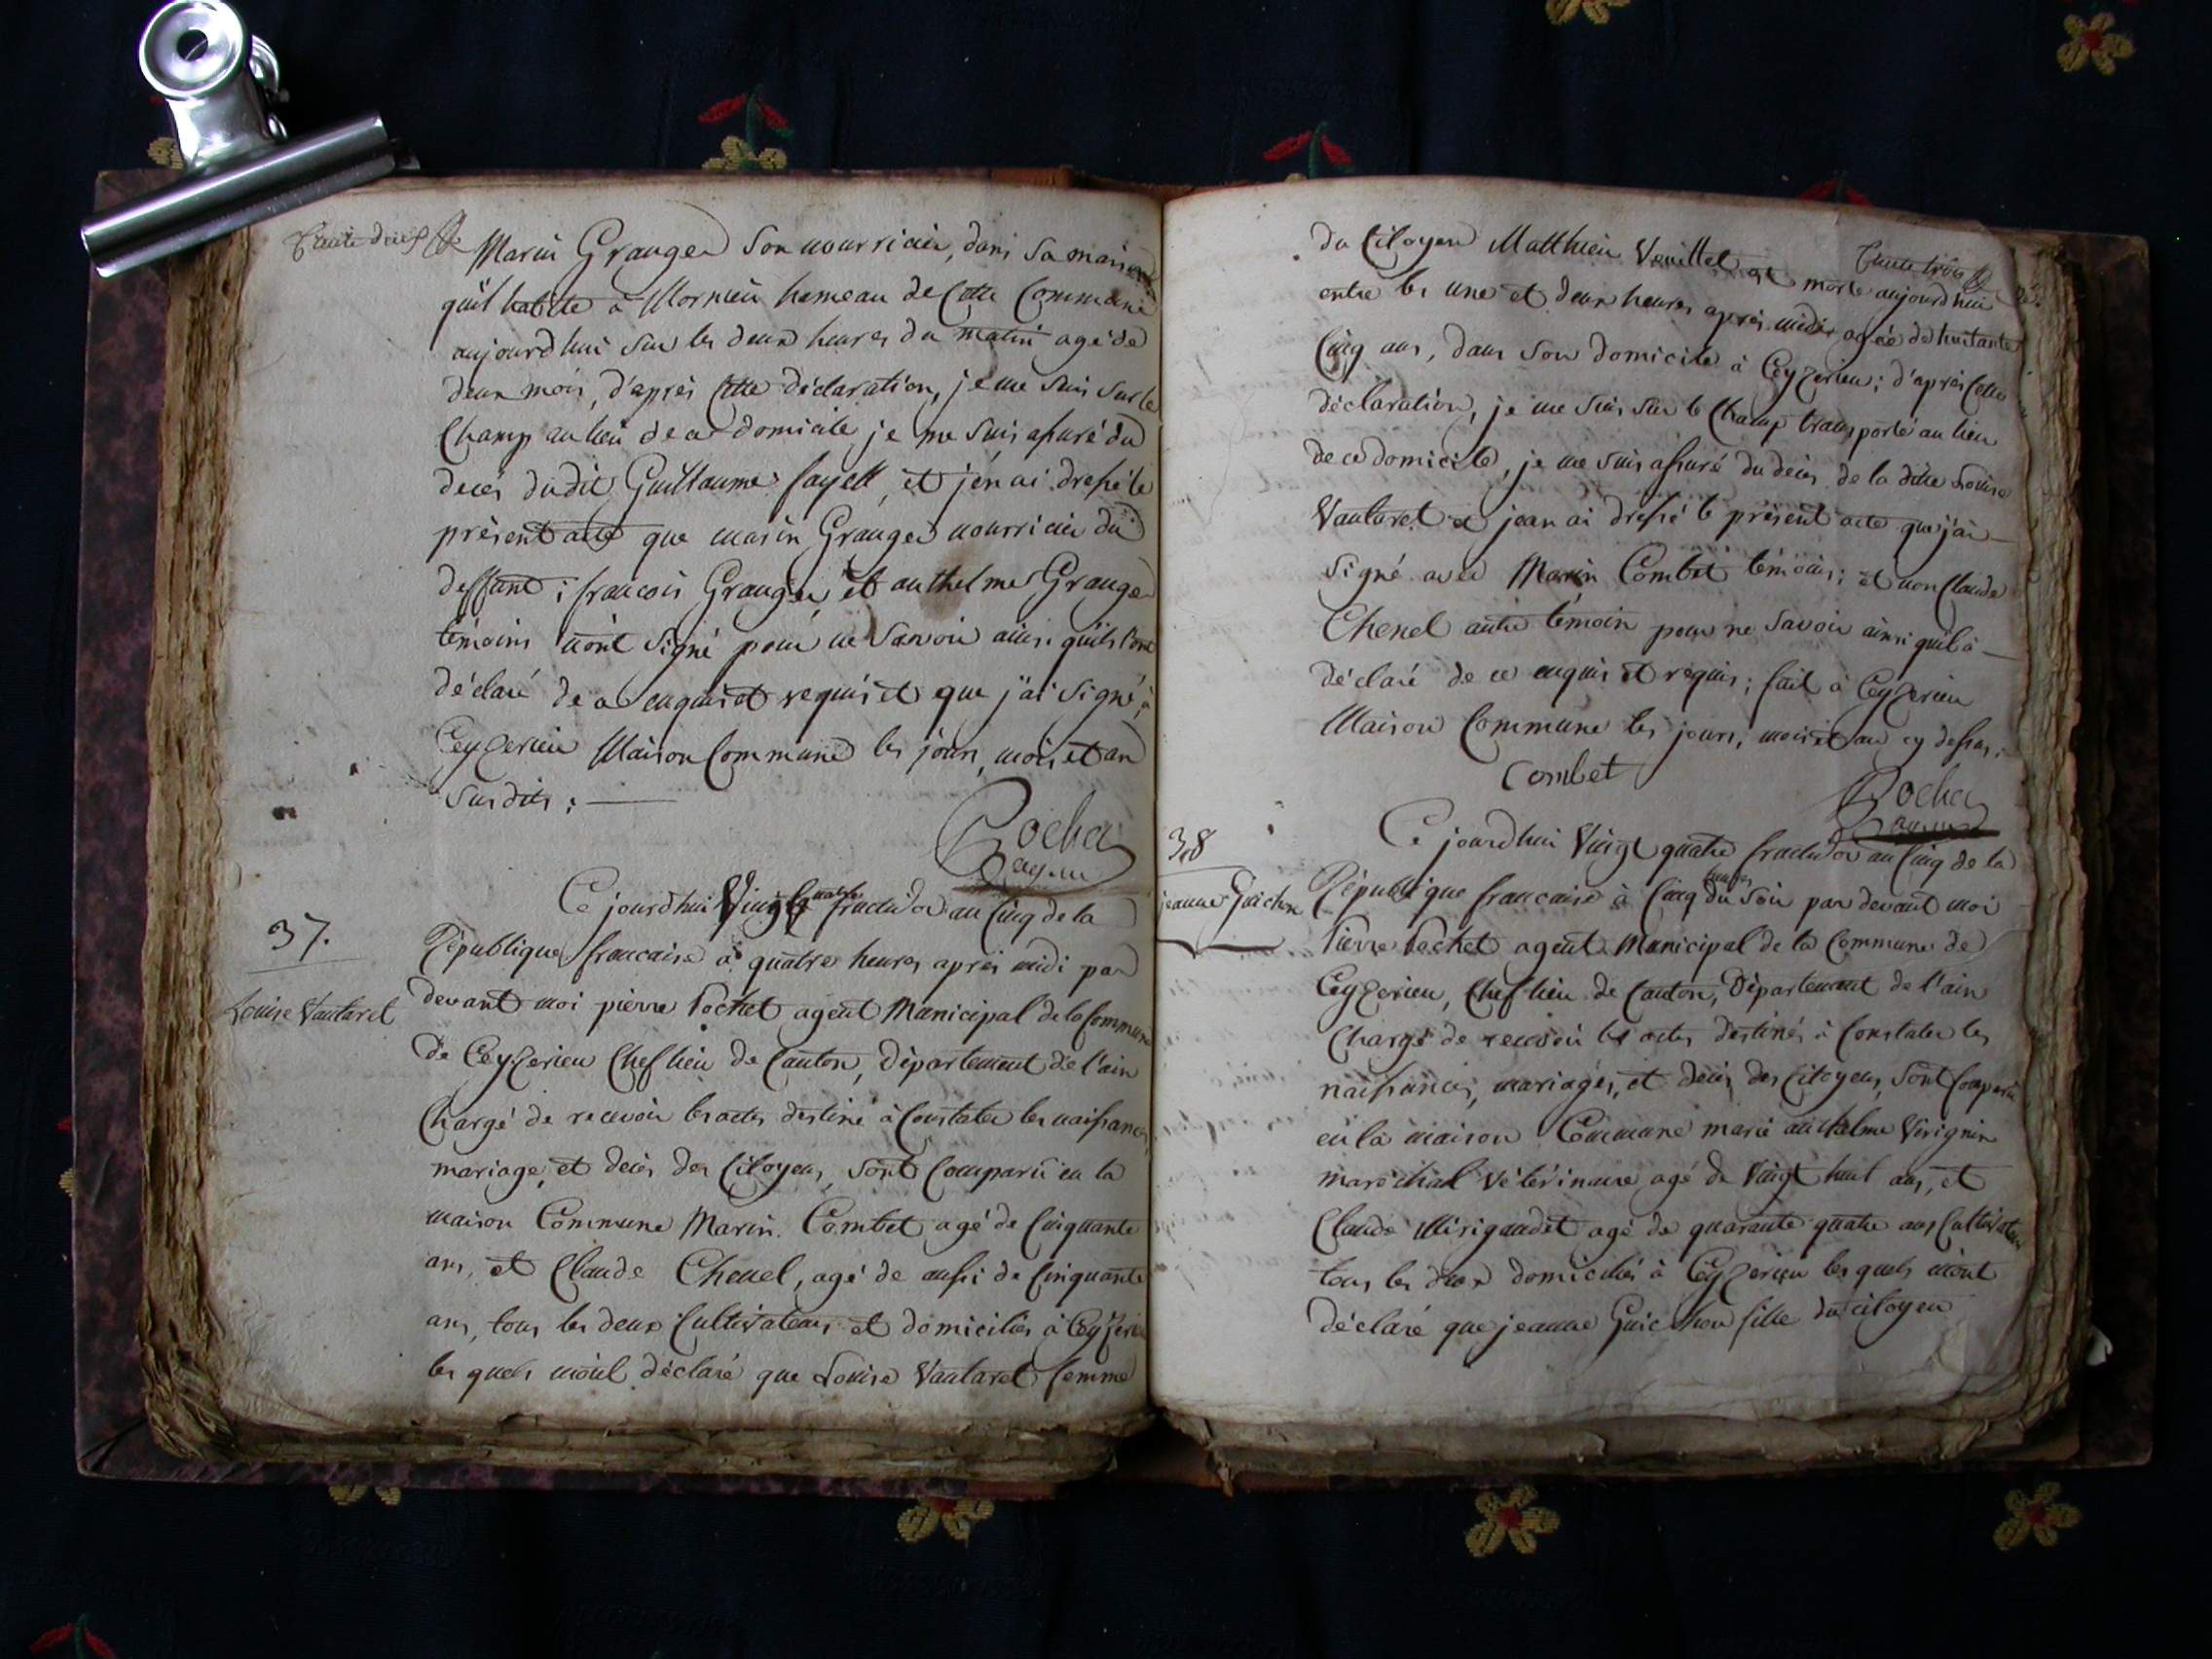 trente deux
Marin Granger son nourricier, dans sa maison
qu'il habite à Mornieu hameau de cette Commune
aujourd'hui sur les deux heures du matin agé de
deux mois, d'après cette déclaration, je me suis sur le
Champ au lieu de ce domicile je me suis assuré du
decès dudit Guillaume fayett, et j'en ai dressé le
présent acte que marin Granger nourricier du
deffunt ; francois Granger et anthelme Granger
témoins n'ont signé pour ne savoir ainsi qu'ils l'ont
déclaré de ce enquis et requis et que j'ai signé, à
Ceyzerieu Maison Commune les jours, mois et an
Susdits ;
Pochet
agent
Ce jourd'hui Vingt quatre fructidor an Cinq de la
37.
République francaise à quatre heures après midi par
Louise Vautaret
devant moi pierre Pochet agent Municipal de la Commune
de Ceyzerieu Chef lieu de Canton, Département de l'ain
Chargé de recevoir les actes destiné à Constater les naissances
mariage, et decès des Citoyens, sont Comparu en la
maison Commune Marin Combet agé de Cinquante
ans, et Claude Chenel, agé de aussi de Cinquante
ans, tous les deux Cultivateurs et domiciliés à Ceyzerieu
les quels m'ont déclaré que Louise Vautaret femme
trente trois
du Citoyen Matthieu Vouillet est morte aujourd'hui
entre les une et deux heures après midi agée de huitante
Cinq ans, dans son domicile à Ceyzerieu ; d'après cette
déclaration, je me suis sur le Champ transporté au lieu
de ce domicile, je me suis assuré du decès de la ditte Louise
Vautaret et jean ai dressé le présent acte que j'ai
Signé avec Marin Combet témoins ; et non Claude
Chenel autre témoin pour ne savoir ainsi qu'il à
déclaré de ce enquis et requis ; fait à Ceyzerieu
Maison Commune les jours, mois et an cy dessus.
Combet
Pochet
agent
38
Ce jourd'hui Vingt quatre fructidor an Cinq de la
jeanne Guichon
République francaise à Cinq heures du Soir par devant moi
Pierre Pochet agent Municipal de la Commune de
Ceyzerieu, Chef lieu de Canton, Département de l'ain
Chargé de recevoir les actes destinés à Constater les
naissances, mariages, et decès des Citoyens, sont Comparu
en la maison Commune marie anthelme Virignin
maréchal vétérinaire agé de Vingt huit ans, et
Claude Mirigaudet agé de quarante quatre ans Cultivateur
tous les deux domiciliés à Ceyzerieu les quels m'ont
déclaré que jeanne Guichon fille du citoyen